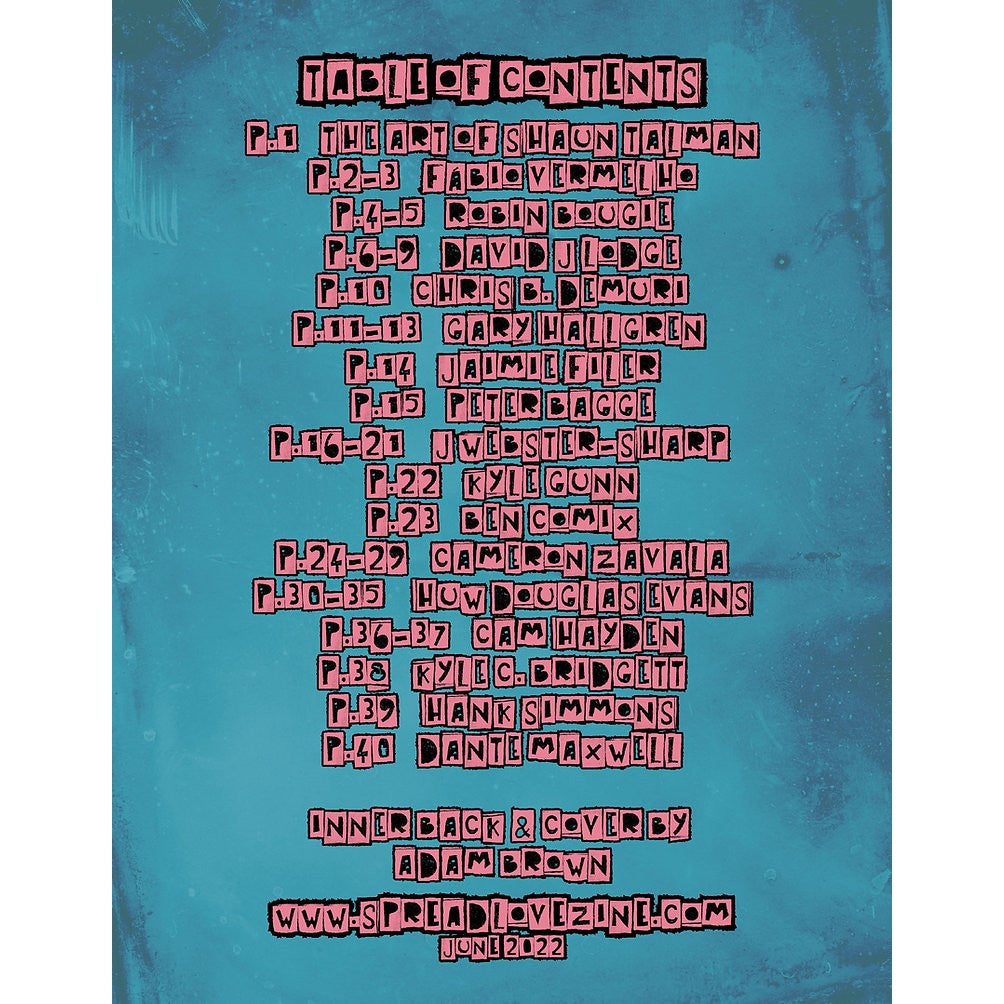 TABLE OF CONTENTS
P.1 THE ART OF SHAUN TALMAN
P.2-3 FABIO VERMELHO
P.4-5 ROBIN BOUGIE
P.6-9 DAVID J LODGE
P.10 CHRIS B. DEMURI
P.11-13 GARY HALLGREN
P.14 JAIMIE FILER
P.15 PETER BAGGE
P.16-21 J WEBSTER-SHARP
P.22 KYLE GUNN
P.23 BEN COMIX
P.24-29 CAMERON ZAVALA
P.30-35 HUW DOUGLAS EVANS
P.36-37 CAM HAYDEN
P.38 KYLE C. BRIDGETT
P.39 HANK SIMMONS
P.40 DANTE MAXWELL
INNER BACK & COVER BY
ADAM BROWN
WWW.SPREADLOVEZINE.COM
JUNE 2022